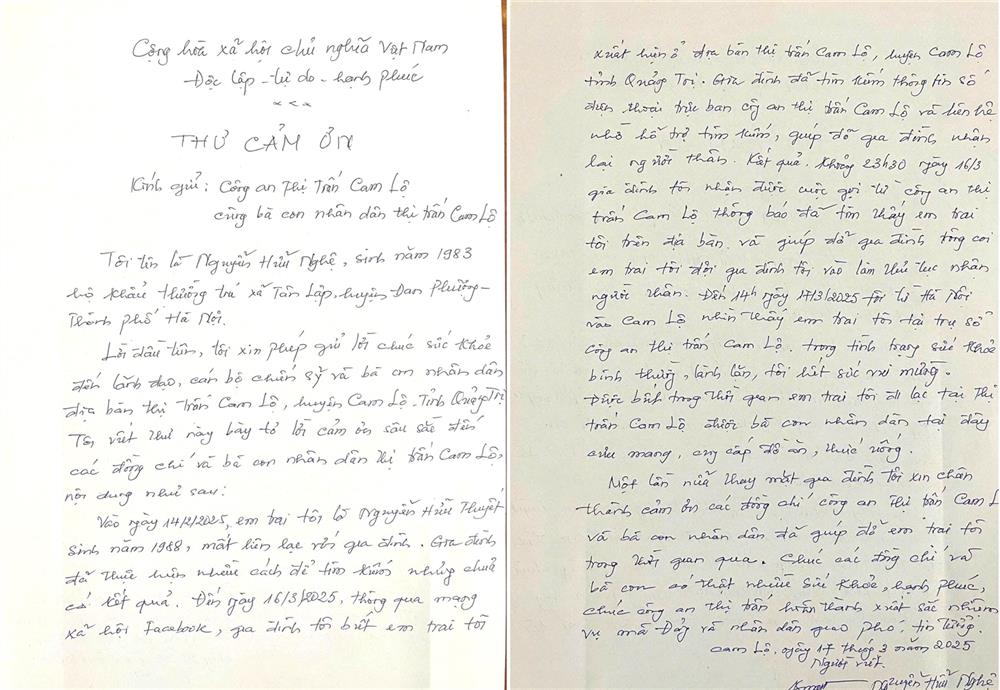 Cộng hòa xã hội chủ nghĩa Việt Nam
Độc lập - tự do - hạnh phúc
THƯ CẢM ƠN
Kính gửi: Công an Thị Trấn Cam Lộ
cùng bà con nhân dân thị trấn Cam Lộ
Tôi tên là Nguyễn Hữu Nghệ, sinh năm 1983
hộ khẩu thường trú xã Tân Lập, huyện Đan Phượng -
Thành phố Hà Nội.
Lời đầu tiên, tôi xin phép gửi lời chúc sức khỏe
đến lãnh đạo, cán bộ chiến sỹ và bà con nhân dân
địa bàn thị trấn Cam Lộ, huyện Cam Lộ - Tỉnh Quảng Trị
Tôi viết thư này bày tỏ lời cảm ơn sâu sắc đến
các đồng chí và bà con nhân dân thị trấn Cam Lộ,
nội dung như sau:
Vào ngày 14/2/2025, em trai tôi là Nguyễn Hữu Thuyết
sinh năm 1988, mất liên lạc với gia đình. Gia đình
đã thực hiện nhiều cách để tìm kiếm nhưng chưa
có kết quả. Đến ngày 16/3/2025, thông qua mạng
xã hội facebook, gia đình tôi biết em trai tôi
xuất hiện ở địa bàn thị trấn Cam Lộ, huyện Cam Lộ
tỉnh Quảng Trị. Gia đình đã tìm kiếm thông tin số
điện thoại trực ban công an thị trấn Cam Lộ và liên hệ
nhờ hỗ trợ tìm kiếm, giúp đỡ gia đình nhận
lại người thân. Kết quả. Khoảng 23h30 ngày 16/3
gia đình tôi nhận được cuộc gọi từ công an thị
trấn Cam Lộ thông báo đã tìm thấy em trai
tôi trên địa bàn và giúp đỡ gia đình trông coi
em trai tôi đợi gia đình tôi vào làm thủ tục nhận
người thân. Đến 14h ngày 17/3/2025 tôi từ Hà Nội
vào Cam Lộ nhìn thấy em trai tôi tại trụ sở
công an thị trấn Cam Lộ. trong tình trạng sức khỏe
bình thường, lành lặn, tôi hết sức vui mừng.
Được biết trong thời gian em trai tôi đi lạc tại Thị
trấn Cam Lộ được bà con nhân dân tại đây
cưu mang, cung cấp đồ ăn, thức uống.
Một lần nữa thay mặt gia đình tôi xin chân
thành cảm ơn các đồng chí công an thị trấn Cam L
và bà con nhân dân đã giúp đỡ em trai tôi
trong thời gian qua. Chúc các đồng chí và
bà con có thật nhiều sức khỏe, hạnh phúc,
chúc công an thị trấn hoàn thành xuất sắc nhiệm
vụ mà Đảng và nhân dân giao phó, tin tưởng.
Cam Lộ, ngày 17 tháng 3 năm 2025
Người viết.
Nguyễn Hữu Nghệ